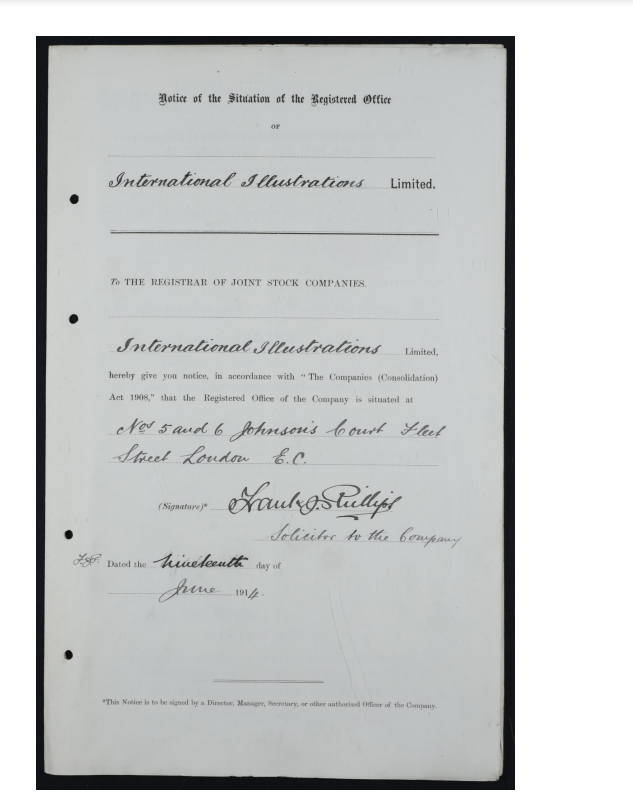 Notice of the Situation of the Registered Office
OF
International Illustrations Limited.
To THE REGISTRAR OF JOINT STOCK COMPANIES.
International Illustrations Limited,
hereby give you notice, in accordance with "The Companies (Consolidation)
Act 1908," that the Registered Office of the Company is situated at
Nos 5 and 6 Johnson's Court Fleet
Street London E.C.
(Signature)* Frank J. Phillips
Solicitor to the Company
Dated the Nineteenth day of
June 1914.
*This Notice is to be signed by a Director, Manager, Secretary, or other authorised Officer of the Company.